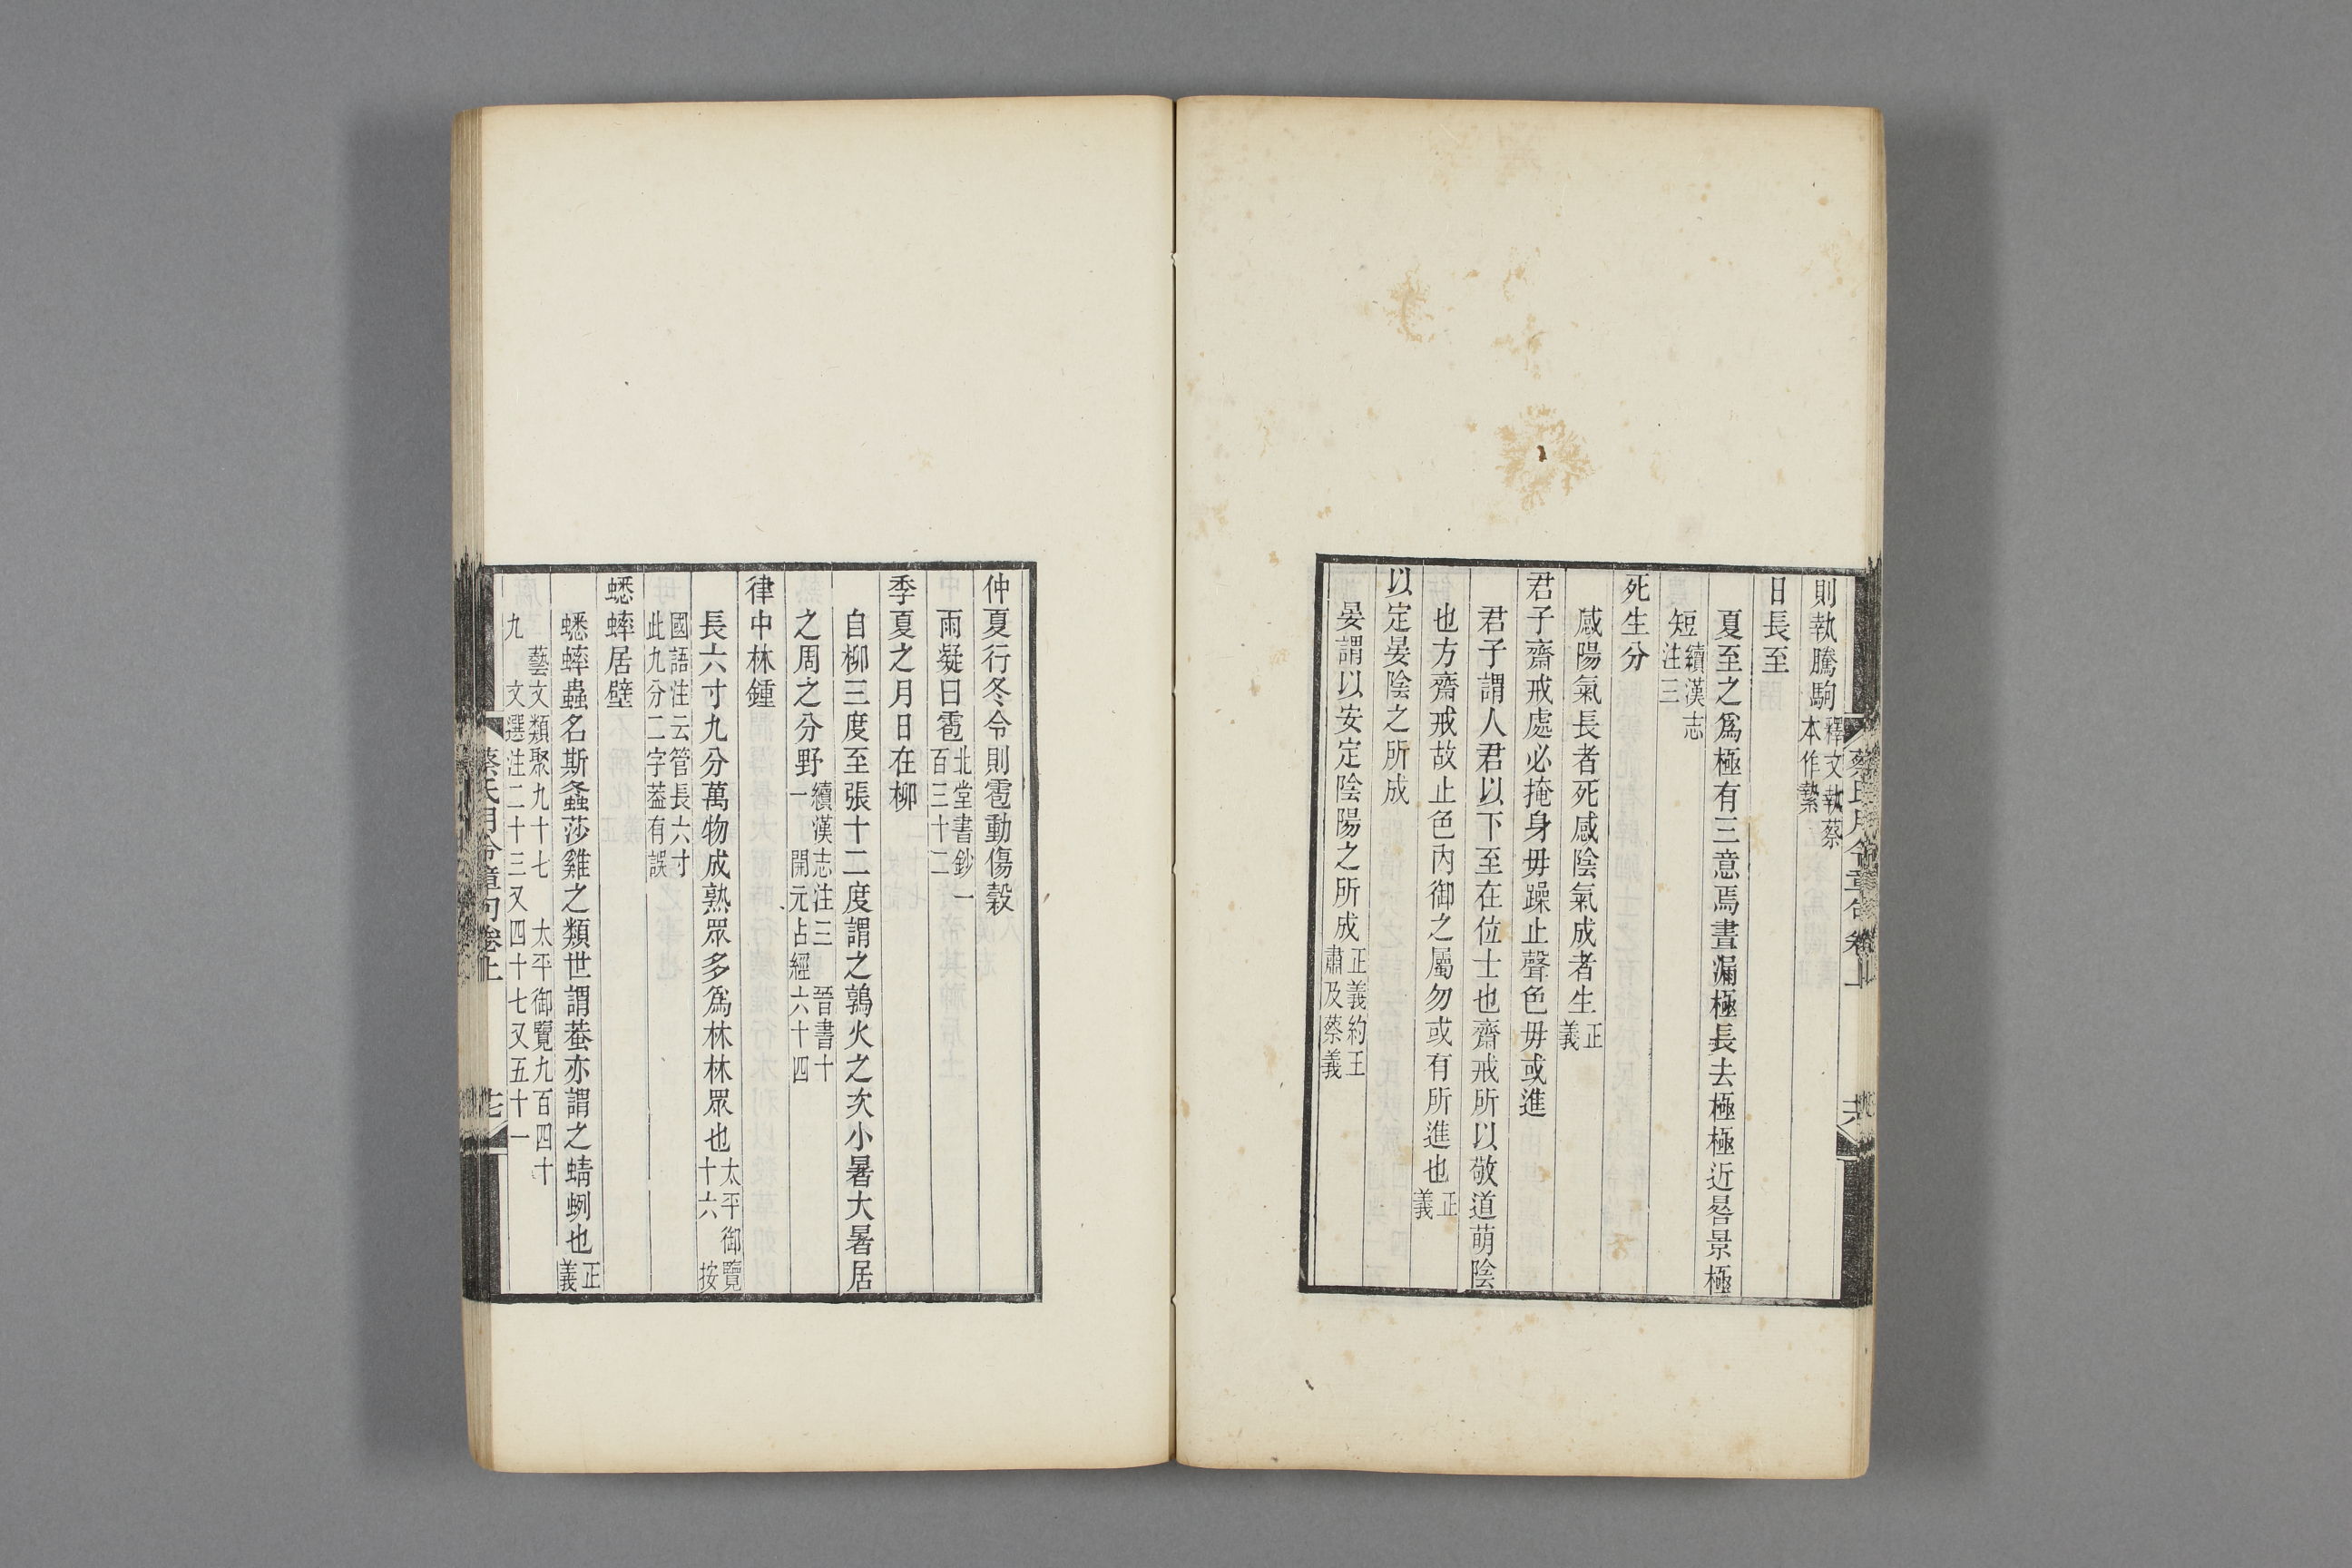 則執騰駒釋文執蔡本作縶
日長至
夏至之爲極有三意焉晝漏極長去極極近晷景極
短續漢志注三
死生分
感陽氣長者死感陰氣成者生正義
君子齋戒處必掩身毋躁止聲色毋或進
君子謂人君以下至在位士也齋戒所以敬道萌陰
也方齋戒故止色內御之屬勿或有所進也正義
以定晏陰之所成
晏謂以安定陰陽之所成正義約王肅及蔡義
蔡氏月令章句卷上
仲夏行冬令則雹動傷穀
雨凝曰雹北堂書鈔一百三十二
季夏之月日在柳
自柳三度至張十二度謂之鶉火之次小暑大暑居
之周之分野續漢志注三 晉書十一 開元占經六十四
律中林鍾
長六寸九分萬物成熟眾多爲林林眾也太平御覽十六 按
國語注云管長六寸此九分二字葢有誤
蟋蟀居壁
蟋蟀蟲名斯螽莎雞之類世謂蛬亦謂之蜻蛚也正義
藝文類聚九十七 太平御覽九百四十九 文選注二十三又四十七又五十一
蔡氏月令章句卷上 十七